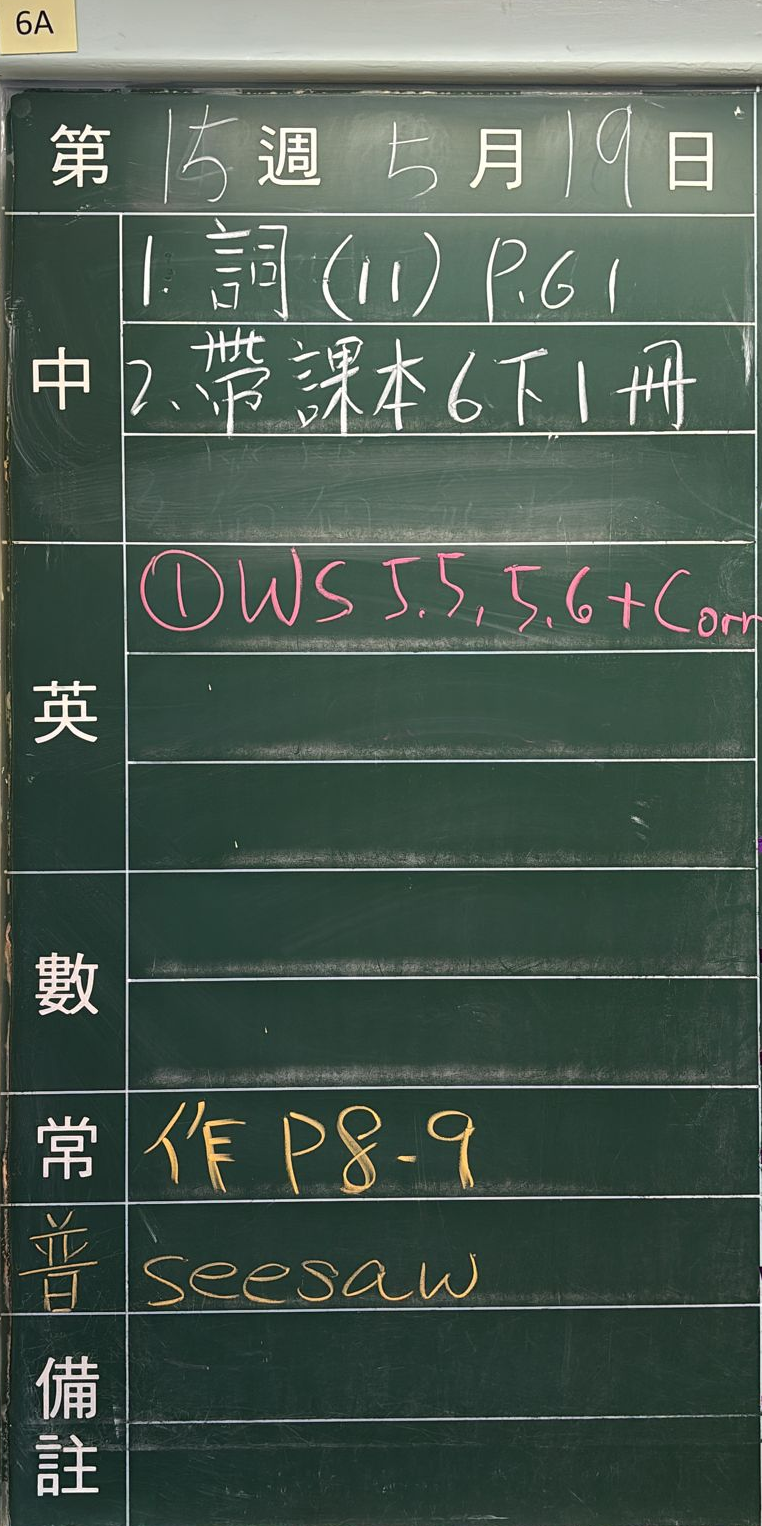 6A
第 15 週 5 月 19 日
中
1. 詞(11) P.61
2. 帶課本6下1冊
英
① WS 5.5, 5.6 + Corr
數
常
作 P8-9
普
seesaw
備註